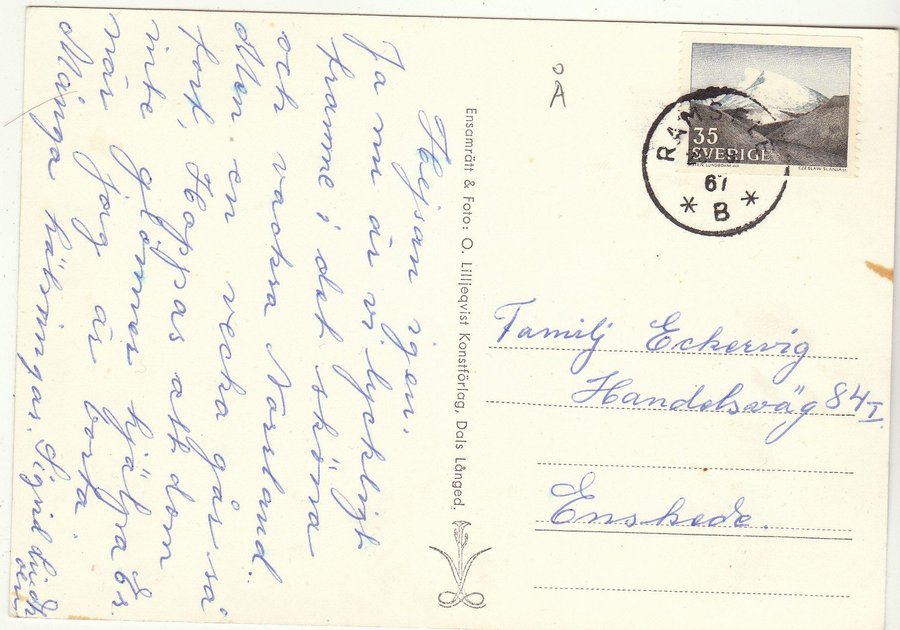 Hejsan igen.
Ja nu är vi lyckligt
framme i det sköna
och vackra Norland.
Men en vecka går så
fort, Hoppas att dom
inte glömmer hjälpa Er
när jag är borta.
Många hälsningar. Sigrid
Ensamrätt & Foto: O. Lilljeqvist Konstförlag, Dals Långed.
Å
35
SVERIGE
CZESLAW SLANIA SC.
RAMSELE
67
* B *
Familj Eckervig
Handelsväg 84 I
Enskede.